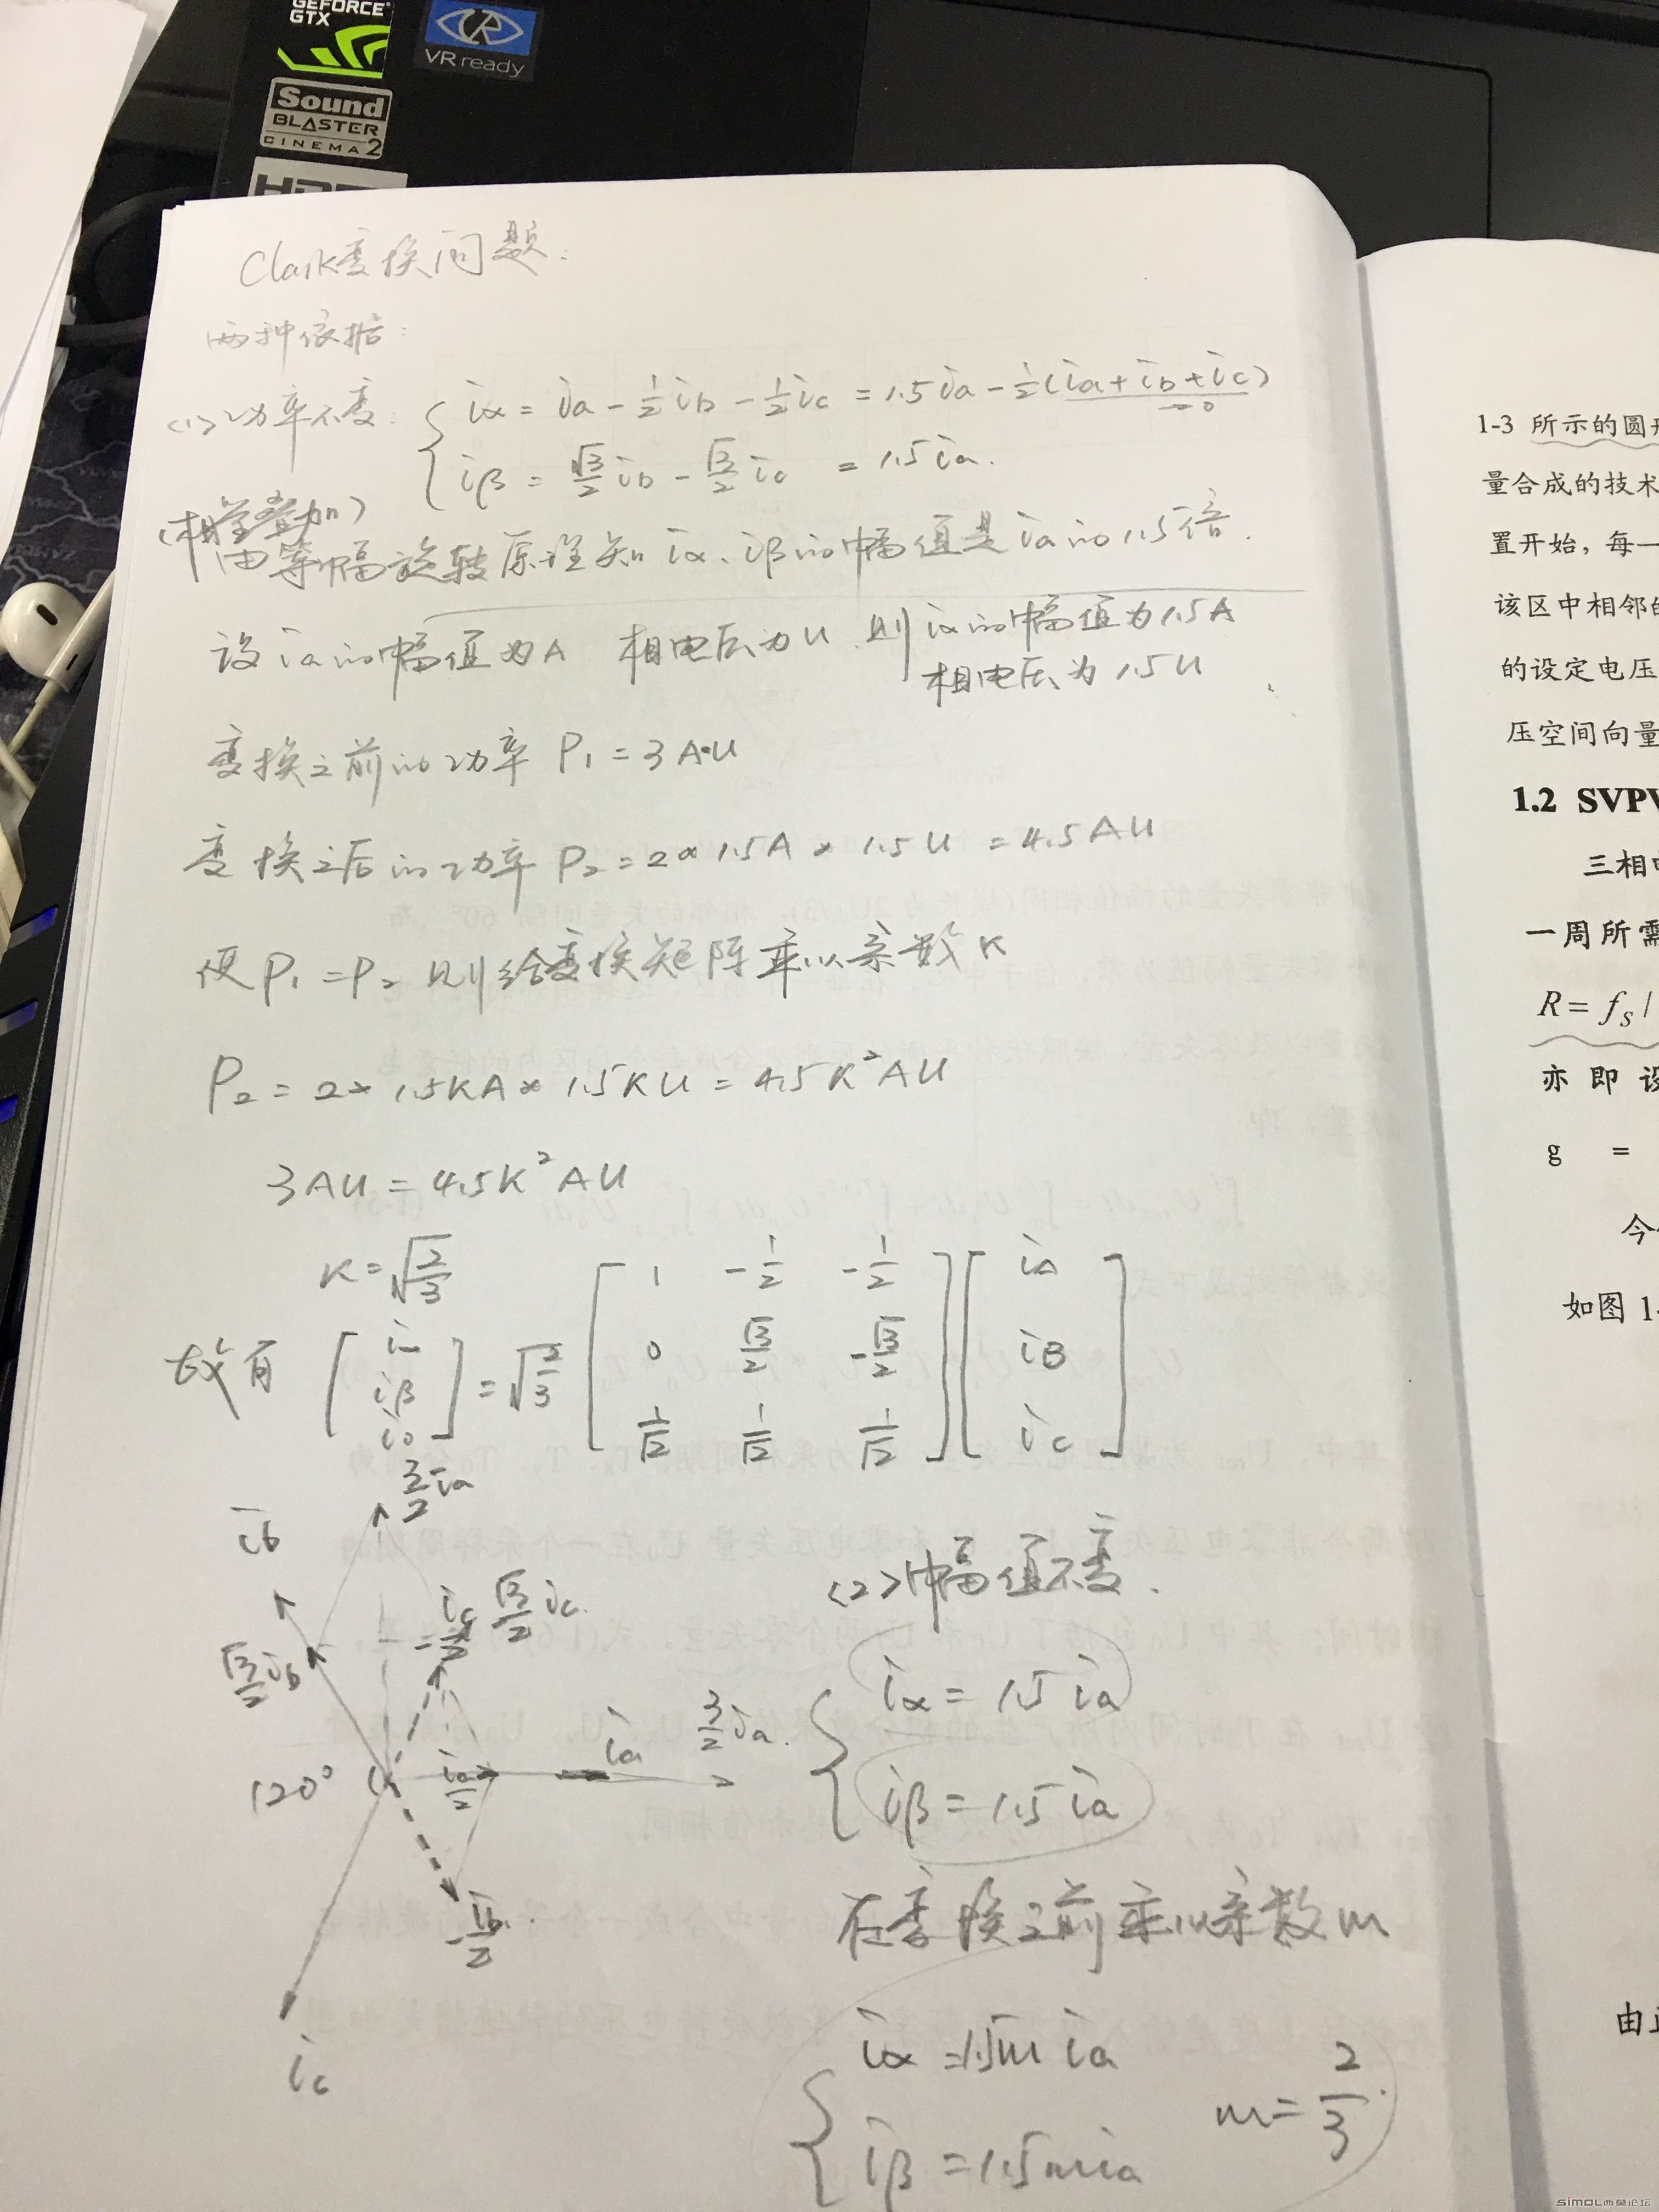 GEFORCE
GTX
VR ready
Sound
BLASTER
CINEMA 2
Clark变换问题:
两种依据:
<1>功率不变: { iα = ia - 1/2 ib - 1/2 ic = 1.5ia - 1/2(ia + ib + ic)
=0
iβ = √3/2 ib - √3/2 ic = 1.5ia.
(相量叠加)
由等幅旋转原理知 iα、iβ的幅值是ia的1.5倍.
设ia的幅值为A 相电压为U.则iα的幅值为1.5A
相电压为1.5U
变换之前的功率 P1 = 3A·U
变换之后的功率 P2 = 2×1.5A×1.5U = 4.5AU
使P1=P2 则给变换矩阵乘以系数K
P2 = 2×1.5KA×1.5KU = 4.5K²AU
3AU = 4.5K²AU
K=√2/3
故有 [iα iβ i0] = √2/3 [1 -1/2 -1/2
0 √3/2 -√3/2
1/√2 1/√2 1/√2] [iA iB iC]
3/2 ia
ib
√3/2 ib
√3/2 ic.
120°
ia/2
ia
3/2 ia.
-ib/2
ic
<2>幅值不变.
{ iα = 1.5ia
iβ = 1.5ia
在变换之前乘以系数m
{ iα =1.5m ia
iβ =1.5mia
m=2/3.
1-3 所示的圆
量合成的技术
置开始，每一
该区中相邻
的设定电压
压空间向量
1.2 SVP
三相
一周所需
R= fS /
亦 即 设
g =
今
如图 1
由
SimOL西莫论坛